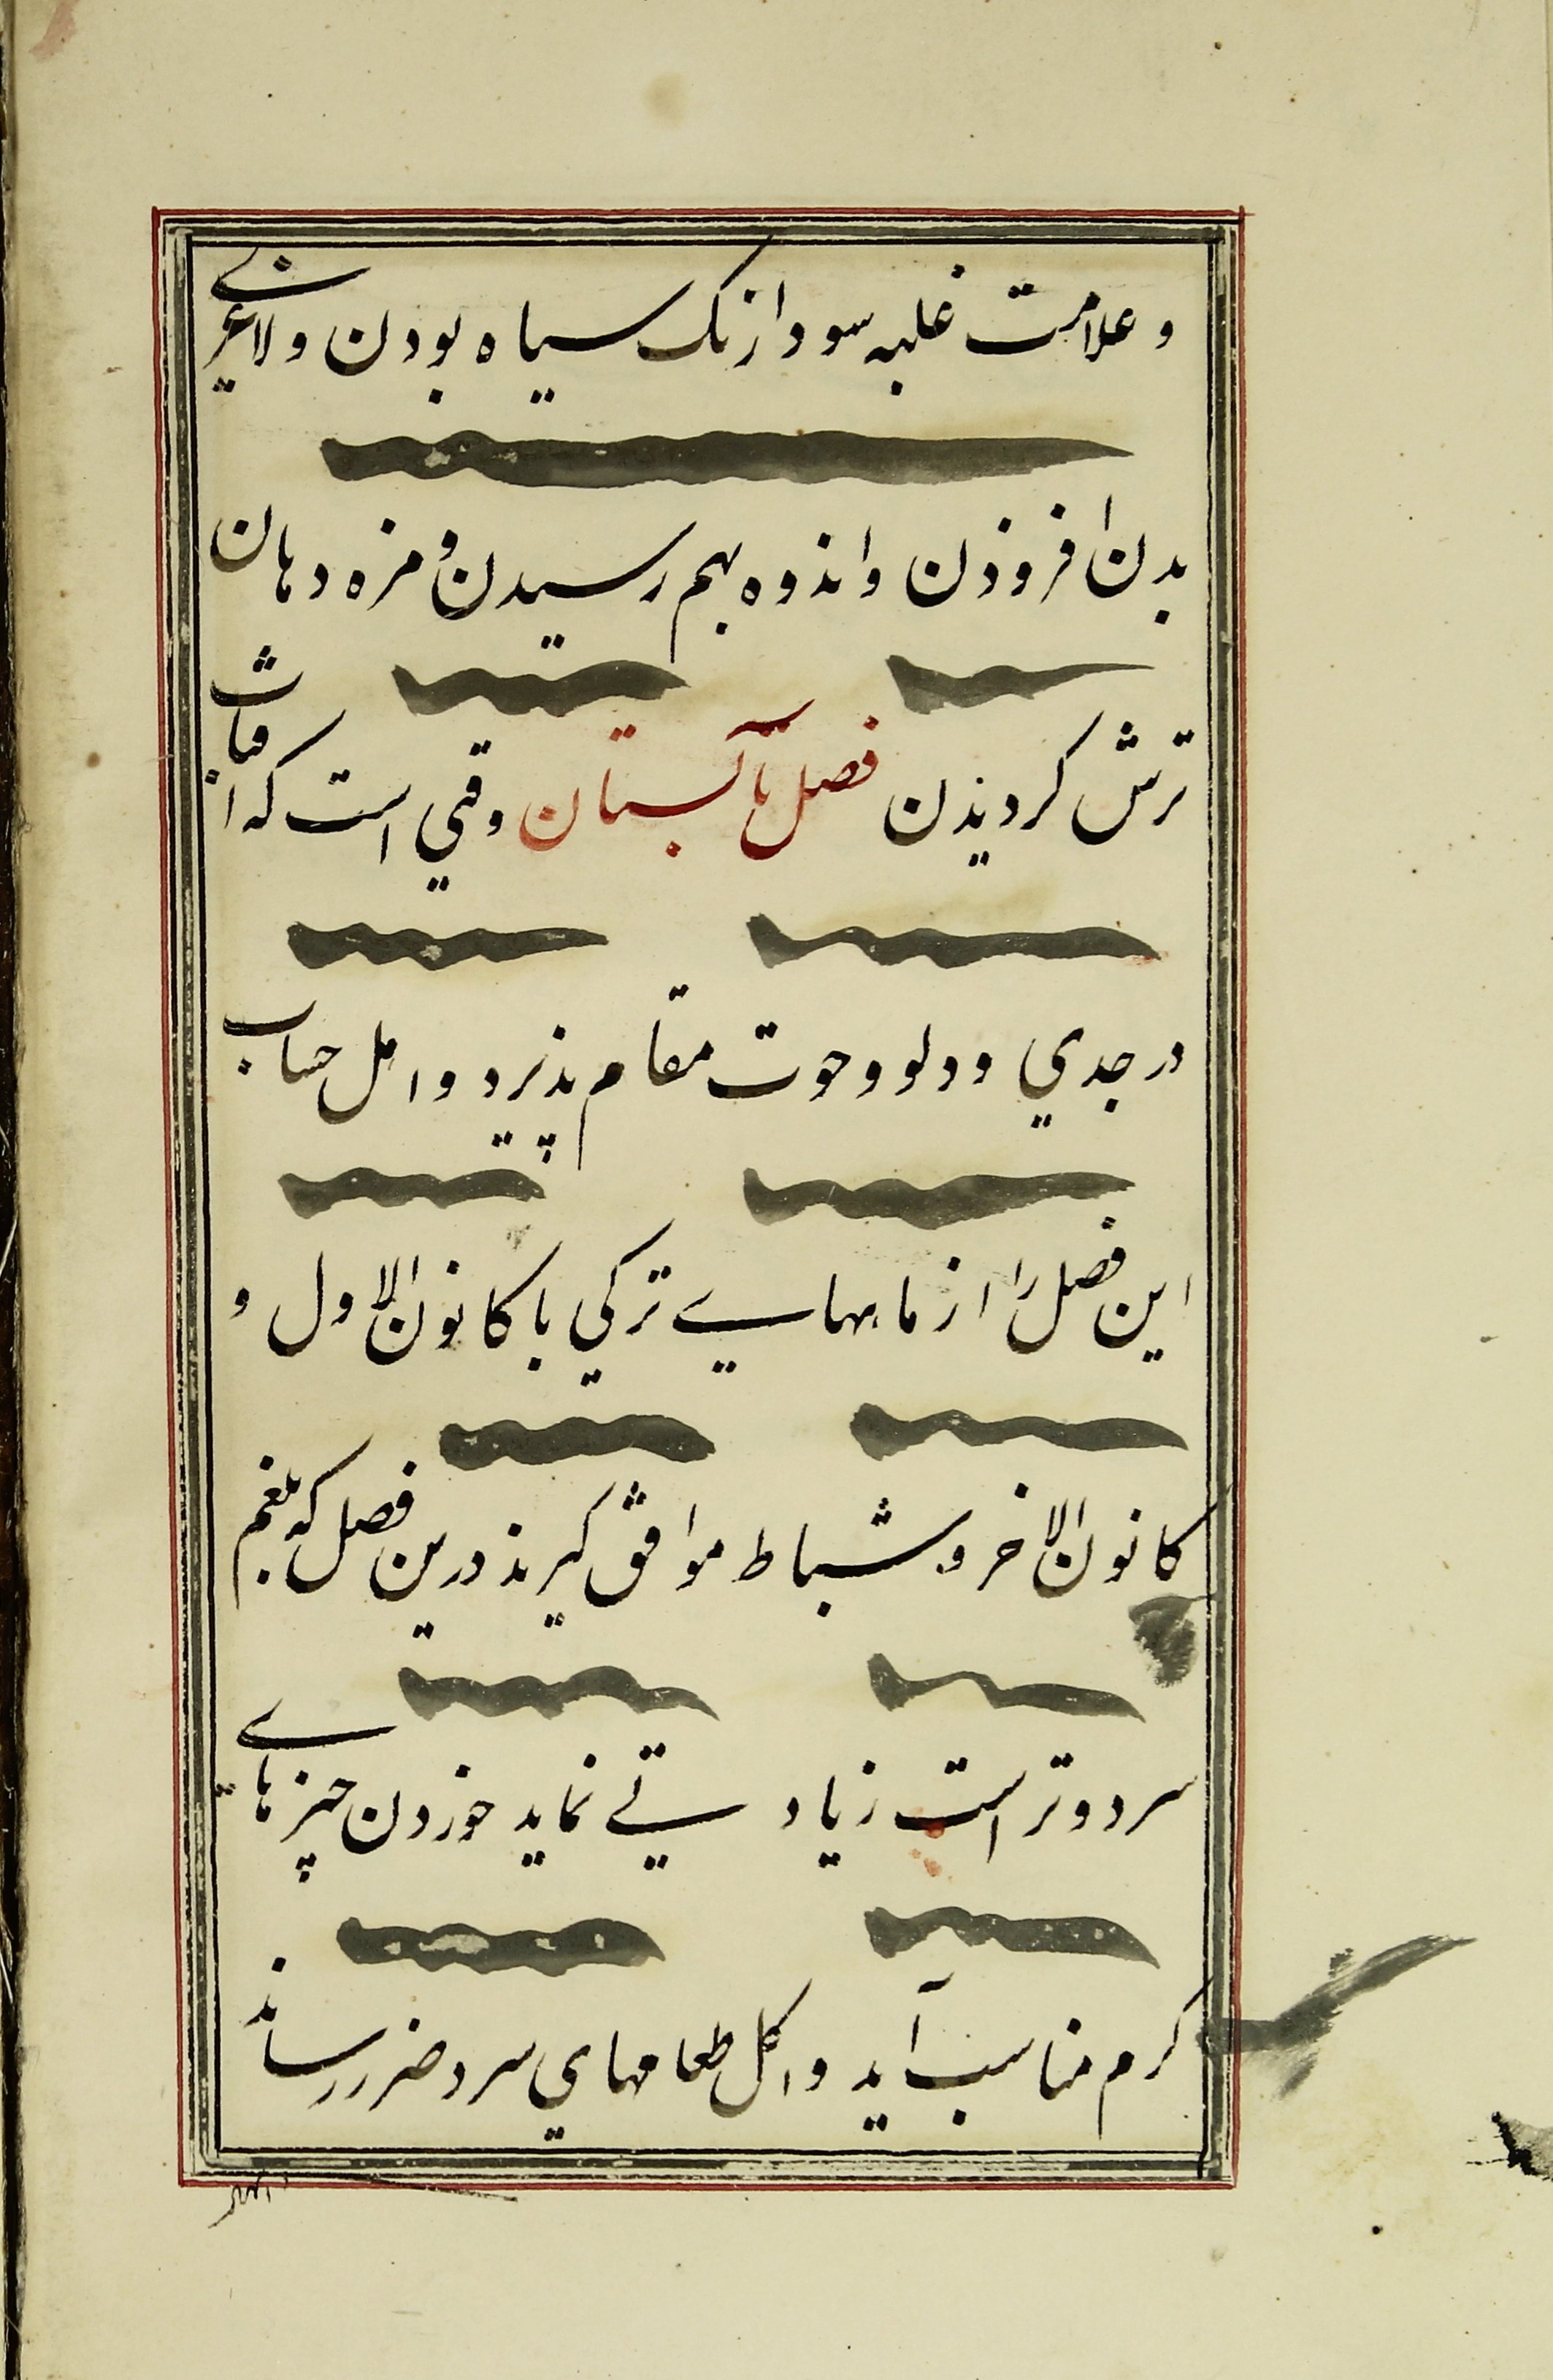 و علامت غلبه سودا رنک سیاه بودن و لاغری
بدن افزوذن و انذوه بهم رسیدن و مزه دهان
ترش کردیذن فصل تابستان وقتی است که افتاب
در جدی و دلو و حوت مقام پذیرد و اهل حساب
این فصل را از ماههای ترکی با کانون الاول و
کانون الاخر و شباط موافق کیرند درین فصل که بلغم
سرد و تر است زیادتی نماید خوردن چیزهای
کرم مناسب آید و اکل طعامهای سرد ضرر رساند